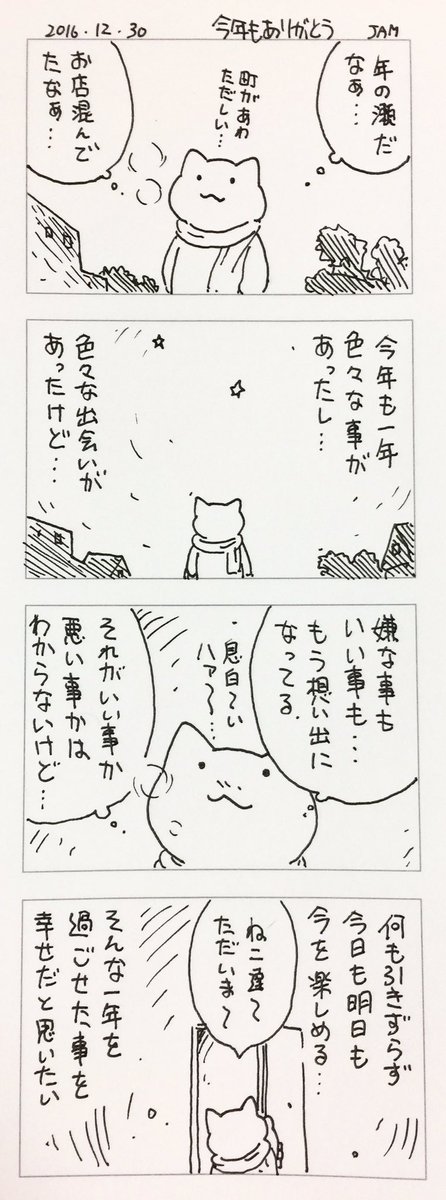 2016.12.30
今年もありがとう
JAM
年の瀬だ
なぁ…
町があわ
ただしい…
お店混んで
たなぁ…
今年も一年
色々な事が
あったし…
色々な出会いが
あったけど…
嫌な事も
いい事も…
もう想い出に
なってる。
息白〜い
ハァ〜…
それがいい事か
悪い事かは
わからないけど…
何も引きずらず
今日も明日も
今を楽しめる…
ねこ達〜
ただいま〜
そんな一年を
過ごせた事を
幸せだと思いたい